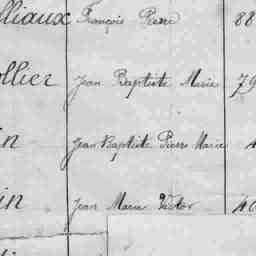 lliaux François Pierre 88
ollier Jean Baptiste Marie 79
in Jean Baptiste Pierre Marie 4
in Jean Marie Victor 40